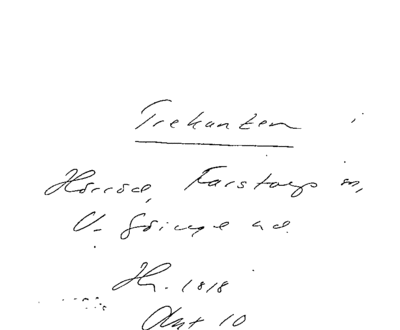 Trekanten
Hörröd, Farstorps sn,
V. Göinge hd.
Hn. 1818
Ant 10